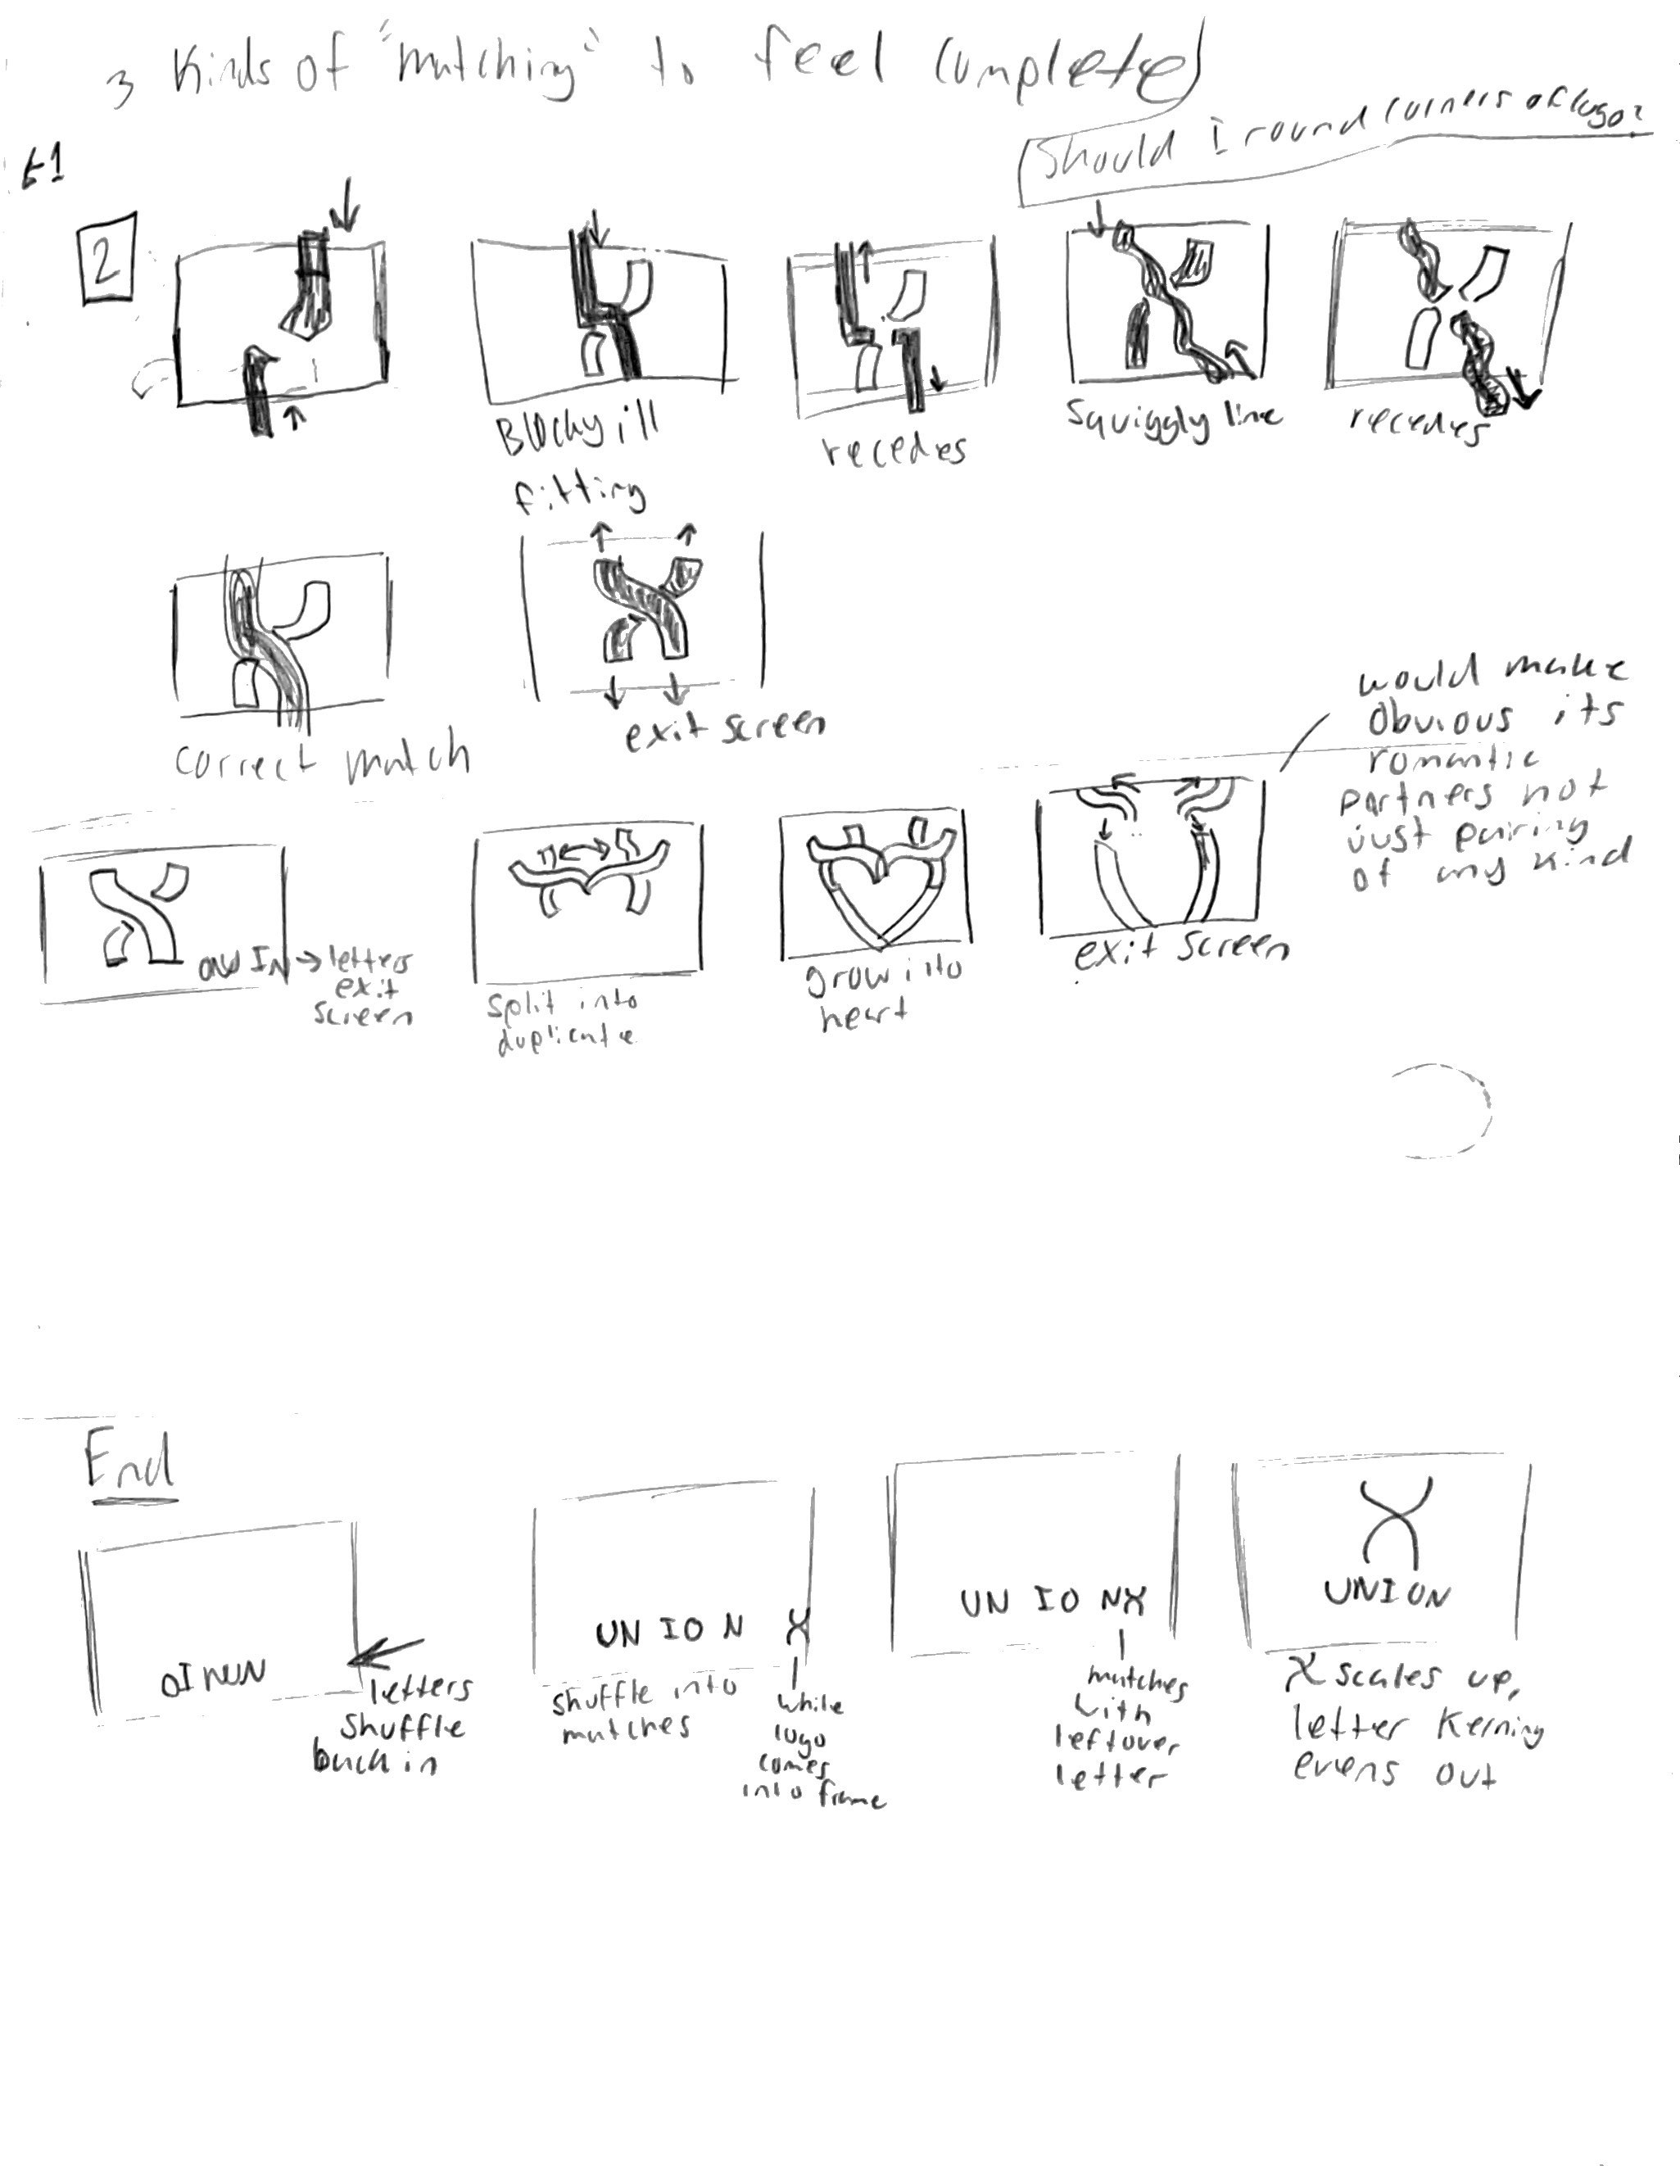 3 Kinds of "matching" to feel complete
Should I round corners of logo?
t1
2
Blocky ill
fitting
recedes
Squiggly line
recedes
correct match
exit screen
would make
obvious its
romantic
partners not
just pairing
of any kind
IN → letters
exit
screen
split into
duplicate
grow into
heart
exit screen
End
OINUN
letters
shuffle
back in
UN IO N X
shuffle into
matches
while
logo
comes
into frame
UN IO NX
matches
with
leftover
letter
UNION
X scales up,
letter Kerning
evens out